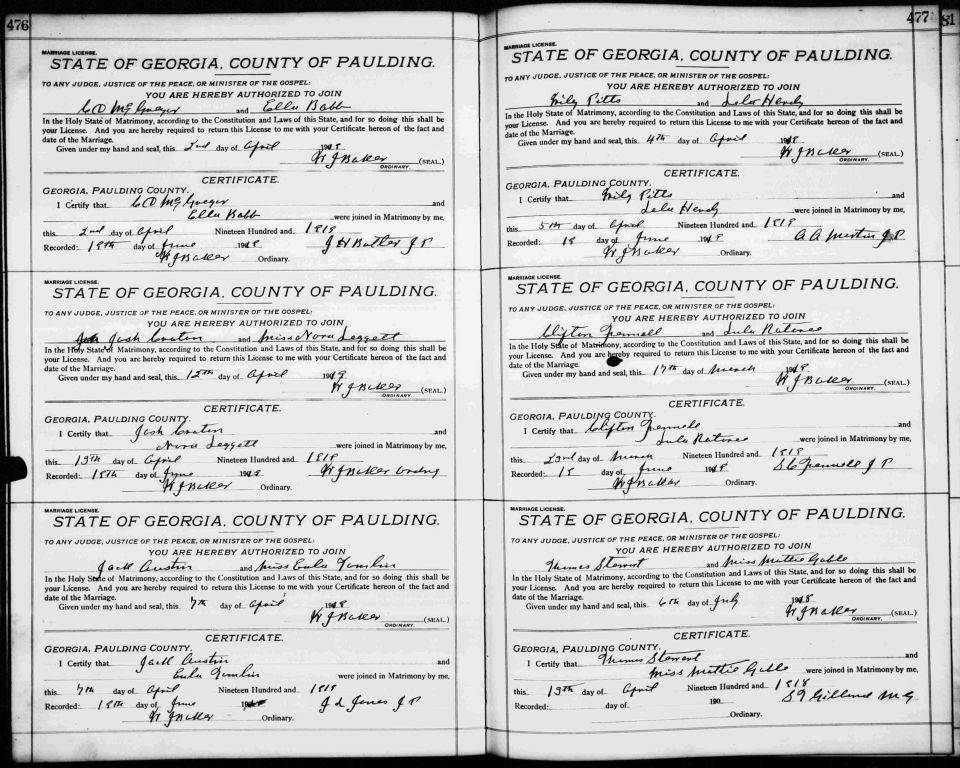 476
MARRIAGE LICENSE.
STATE OF GEORGIA, COUNTY OF PAULDING.
TO ANY JUDGE, JUSTICE OF THE PEACE, OR MINISTER OF THE GOSPEL:
YOU ARE HEREBY AUTHORIZED TO JOIN
C D McGregor and Ella Babb
In the Holy State of Matrimony, according to the Constitution and Laws of this State, and for so doing this shall be
your License. And you are hereby required to return this License to me with your Certificate hereon of the fact and
date of the Marriage.
Given under my hand and seal, this 2nd day of April 1918
W J Baker (SEAL.)
ORDINARY.
CERTIFICATE.
GEORGIA, PAULDING COUNTY.
I Certify that C D McGregor and
Ella Babb were joined in Matrimony by me,
this 2nd day of April Nineteen Hundred and 1918
Recorded: 18th day of June 1918 J H Butler J P
W J Baker Ordinary.
MARRIAGE LICENSE.
STATE OF GEORGIA, COUNTY OF PAULDING.
TO ANY JUDGE, JUSTICE OF THE PEACE, OR MINISTER OF THE GOSPEL:
YOU ARE HEREBY AUTHORIZED TO JOIN
Josh Craton and Miss Nora Leggett
In the Holy State of Matrimony, according to the Constitution and Laws of this State, and for so doing this shall be
your License. And you are hereby required to return this License to me with your Certificate hereon of the fact and
date of the Marriage.
Given under my hand and seal, this 12th day of April 191
W J Baker (SEAL.)
ORDINARY.
CERTIFICATE.
GEORGIA, PAULDING COUNTY.
I Certify that Josh Craton and
Nora Leggett were joined in Matrimony by me,
this 13th day of April Nineteen Hundred and 1918
Recorded: 18th day of June 1918 W J Baker Ordny
W J Baker Ordinary.
MARRIAGE LICENSE.
STATE OF GEORGIA, COUNTY OF PAULDING.
TO ANY JUDGE, JUSTICE OF THE PEACE, OR MINISTER OF THE GOSPEL:
YOU ARE HEREBY AUTHORIZED TO JOIN
Jack Austin and Miss Eula Tomlin
In the Holy State of Matrimony, according to the Constitution and Laws of this State, and for so doing this shall be
your License. And you are hereby required to return this License to me with your Certificate hereon of the fact and
date of the Marriage.
Given under my hand and seal, this 7th day of April 1918
W J Baker (SEAL.)
ORDINARY.
CERTIFICATE.
GEORGIA, PAULDING COUNTY.
I Certify that Jack Austin and
Eula Tomlin were joined in Matrimony by me,
this 7th day of April Nineteen Hundred and 1918
Recorded: 18th day of June J L Jones J P
W J Baker Ordinary.
477
81
MARRIAGE LICENSE.
STATE OF GEORGIA, COUNTY OF PAULDING.
TO ANY JUDGE, JUSTICE OF THE PEACE, OR MINISTER OF THE GOSPEL:
YOU ARE HEREBY AUTHORIZED TO JOIN
Pitts and Lela
In the Holy State of Matrimony, according to the Constitution and Laws of this State, and for so doing this shall be
your License. And you are hereby required to return this License to me with your Certificate hereon of the fact and
date of the Marriage.
Given under my hand and seal, this 4th day of April 1918
W J Baker (SEAL.)
ORDINARY.
CERTIFICATE.
GEORGIA, PAULDING COUNTY.
I Certify that Pitts and
Lela were joined in Matrimony by me,
this 5th day of April Nineteen Hundred and 1918
Recorded: 18 day of June 1918 A A Martin J P
W J Baker Ordinary.
MARRIAGE LICENSE.
STATE OF GEORGIA, COUNTY OF PAULDING.
TO ANY JUDGE, JUSTICE OF THE PEACE, OR MINISTER OF THE GOSPEL:
YOU ARE HEREBY AUTHORIZED TO JOIN
Clifton and Lula Ratiree
In the Holy State of Matrimony, according to the Constitution and Laws of this State, and for so doing this shall be
your License. And you are hereby required to return this License to me with your Certificate hereon of the fact and
date of the Marriage.
Given under my hand and seal, this 17th day of March 1918
W J Baker (SEAL.)
ORDINARY.
CERTIFICATE.
GEORGIA, PAULDING COUNTY.
I Certify that Clifton and
Lula Ratiree were joined in Matrimony by me,
this 23rd day of March Nineteen Hundred and 1918
Recorded: 18 day of June 1918 J P
W J Baker Ordinary.
MARRIAGE LICENSE.
STATE OF GEORGIA, COUNTY OF PAULDING.
TO ANY JUDGE, JUSTICE OF THE PEACE, OR MINISTER OF THE GOSPEL:
YOU ARE HEREBY AUTHORIZED TO JOIN
Thomas Stewart and Miss Mattie Goble
In the Holy State of Matrimony, according to the Constitution and Laws of this State, and for so doing this shall be
your License. And you are hereby required to return this License to me with your Certificate hereon of the fact and
date of the Marriage.
Given under my hand and seal, this 6th day of July 1918
W J Baker (SEAL.)
ORDINARY.
CERTIFICATE.
GEORGIA, PAULDING COUNTY.
I Certify that Thomas Stewart and
Miss Mattie Goble were joined in Matrimony by me,
this 13th day of April Nineteen Hundred and 1918
Recorded: day of 190 Gilland M G
Ordinary.